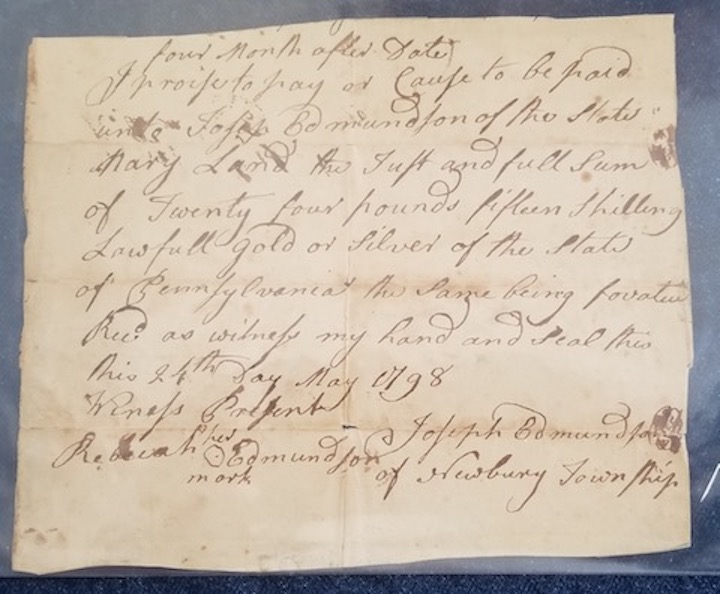 four Month after Date
I proise to pay or Cause to be paid
unto Joseph Edmundson of the State
Mary Land the Just and full Sum
of Twenty four pounds fifteen Shilling
Lawfull gold or Silver of the State
of Pennsylvania the Same being for
Recd as witness my hand and Seal this
this 24th Day May 1798
Witness Present
Joseph Edmundson
Rebecah her Edmundson
mark
of Newbury Township